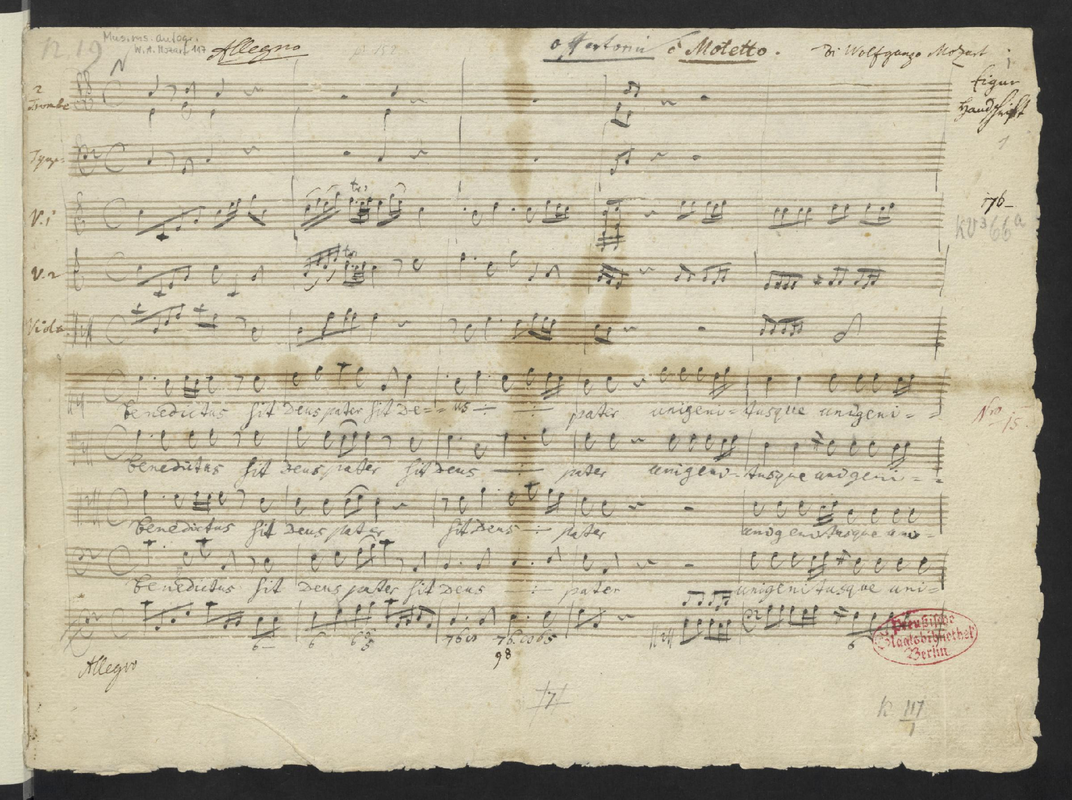 12. 19
Mus. ms. autogr.
W. A. Mozart 117
Allegro
Motetto.
Di Wolfgango Mozart
Eigne
Handschrift
2
Trombe
V. 1
176-
KV³66a
V. 2
Viola
benedictus sit Deus pater sit De - - us pater unigeni - tusque unigeni - -
Nro 15.
benedictus sit Deus pater sit Deus pater unigeni - tusque unigeni - -
benedictus sit Deus pater sit Deus pater unigenitusque uni -
benedictus sit Deus pater sit Deus pater unigenitusque uni -
6 6
98
Preußische
Staatsbibliothek
Berlin
Allegro
7
K 117
1